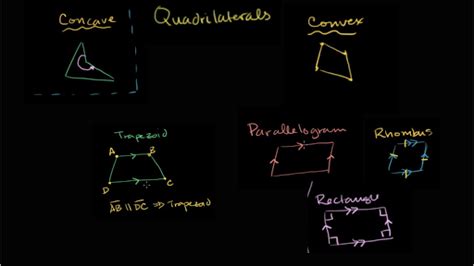 Quadrilaterals
Concave
Convex
Trapezoid
A B
D C
AB || DC ⇒ Trapezoid
Parallelogram
Rhombus
Rectangle